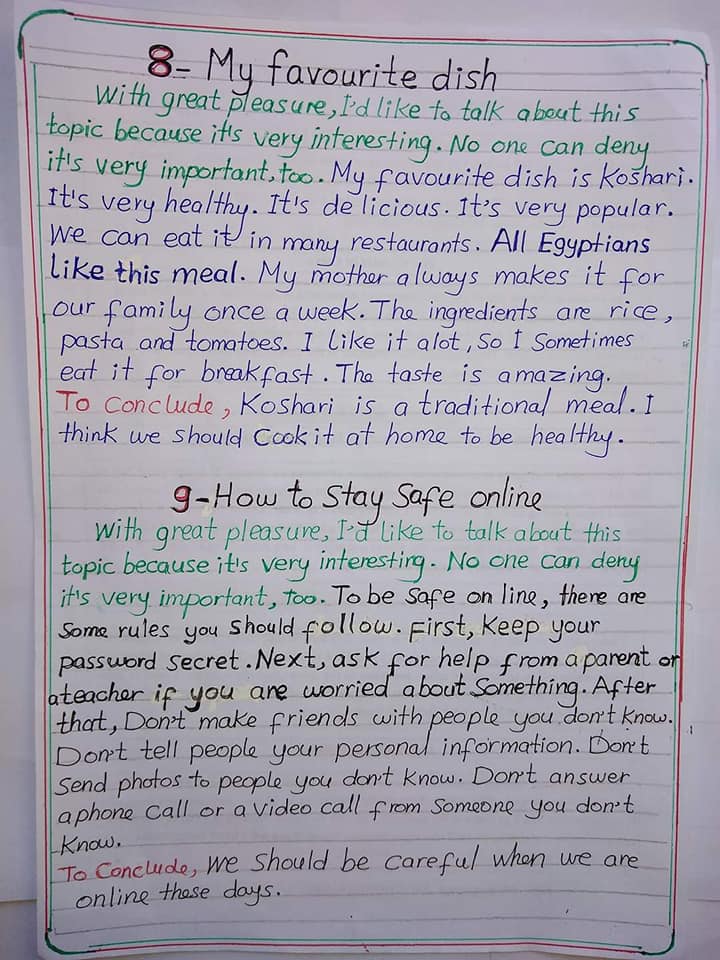 8- My favourite dish
With great pleasure, I'd like to talk about this
topic because it's very interesting. No one can deny
it's very important, too. My favourite dish is Koshari.
It's very healthy. It's delicious. It's very popular.
We can eat it in many restaurants. All Egyptians
like this meal. My mother always makes it for
our family once a week. The ingredients are rice,
pasta and tomatoes. I like it alot, So I Sometimes
eat it for breakfast. The taste is amazing.
To Conclude, Koshari is a traditional meal. I
think we should Cook it at home to be healthy.
9- How to Stay Safe online
With great pleasure, I'd like to talk about this
topic because it's very interesting. No one can deny
it's very important, too. To be Safe on line, there are
Some rules you should follow. First, Keep your
password secret. Next, ask for help from a parent or
a teacher if you are worried about Something. After
that, Don't make friends with people you don't Know.
Don't tell people your personal information. Don't
Send photos to people you don't Know. Don't answer
a phone Call or a video call from Someone you don't
Know.
To Conclude, We Should be careful when we are
online these days.